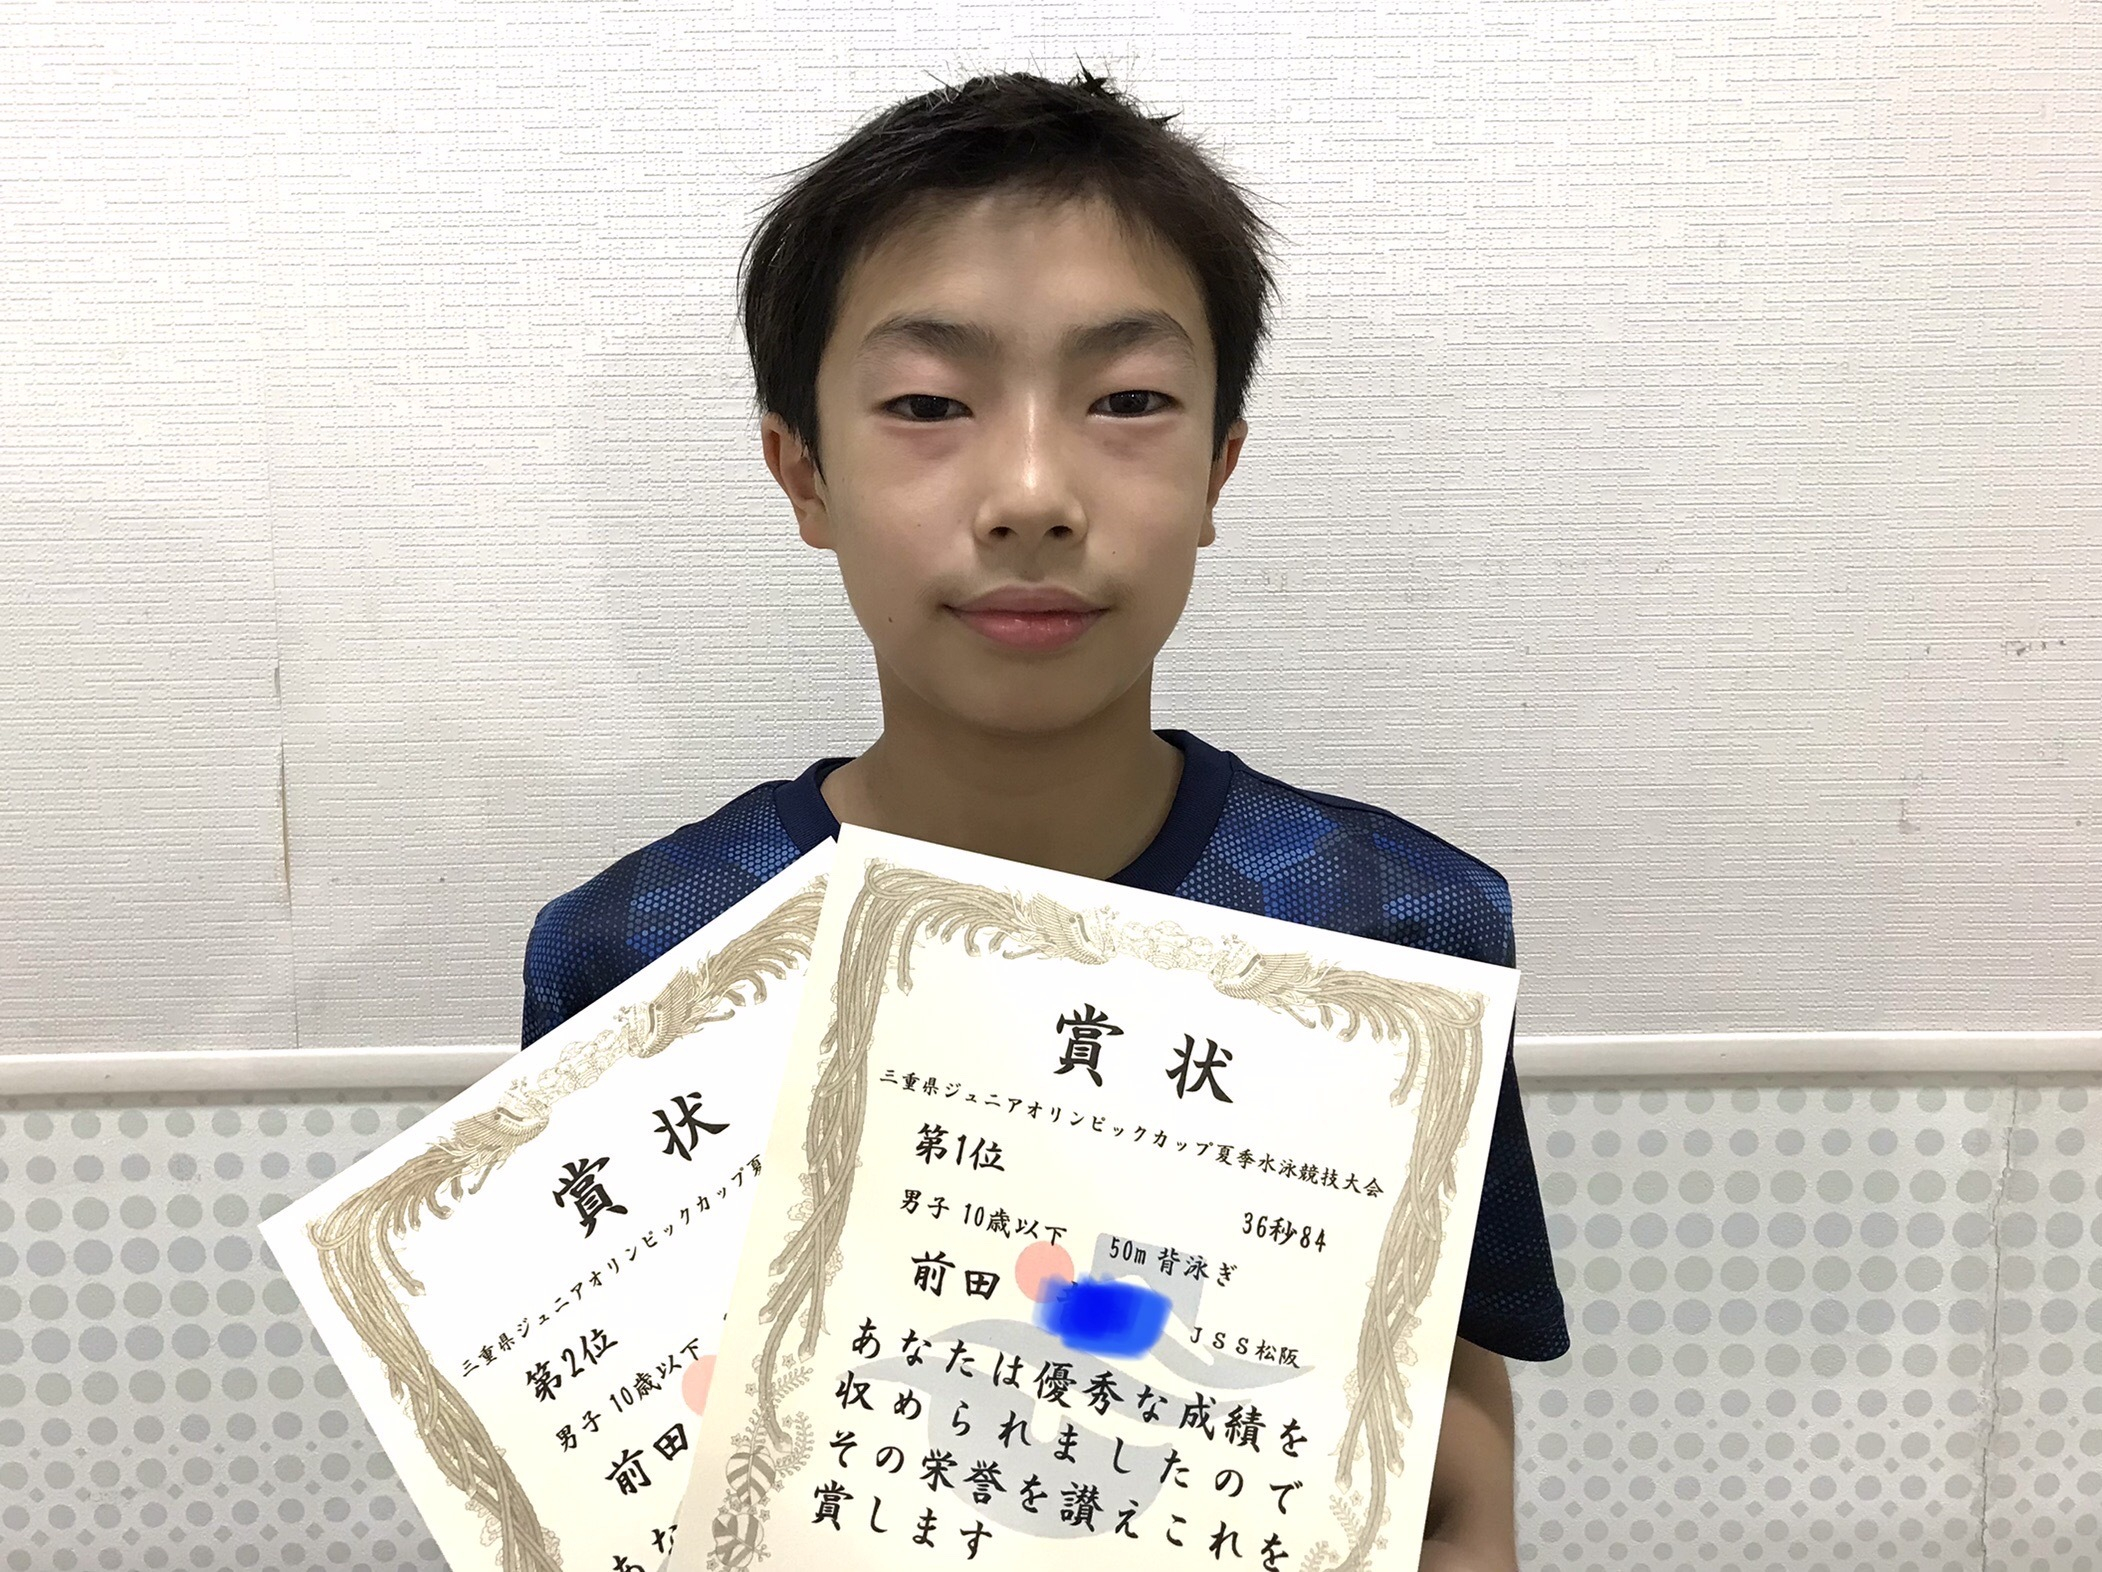 賞状
三重県ジュニアオリンピックカップ夏
第2位
男子 10歳以下
前田
あな
賞状
三重県ジュニアオリンピックカップ夏季水泳競技大会
第1位
36秒84
男子 10歳以下 50m 背泳ぎ
前田
JSS松阪
あなたは優秀な成績を
収められましたので
その栄誉を讃えこれを
賞します